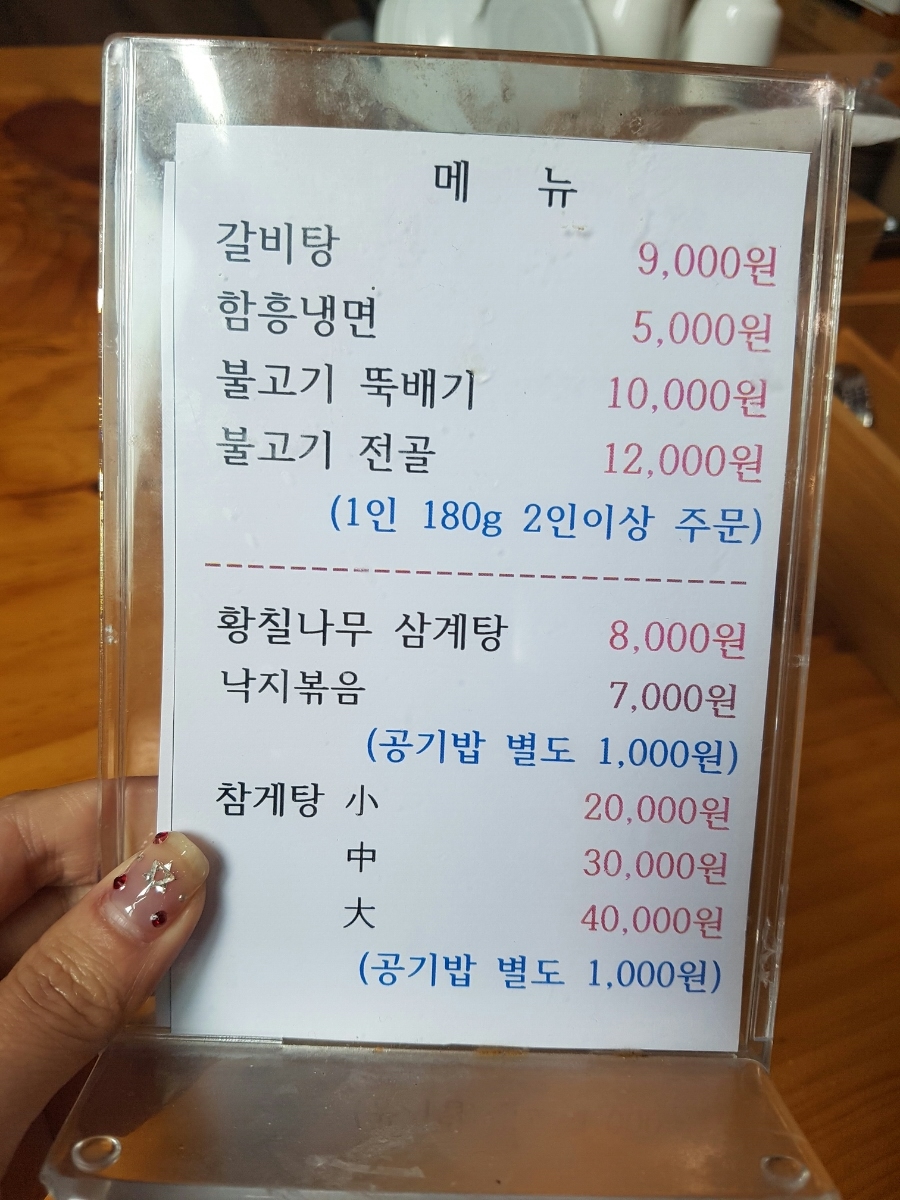 메 뉴
갈비탕 9,000원
함흥냉면 5,000원
불고기 뚝배기 10,000원
불고기 전골 12,000원
(1인 180g 2인이상 주문)
황칠나무 삼계탕 8,000원
낙지볶음 7,000원
(공기밥 별도 1,000원)
참게탕 小 20,000원
中 30,000원
大 40,000원
(공기밥 별도 1,000원)